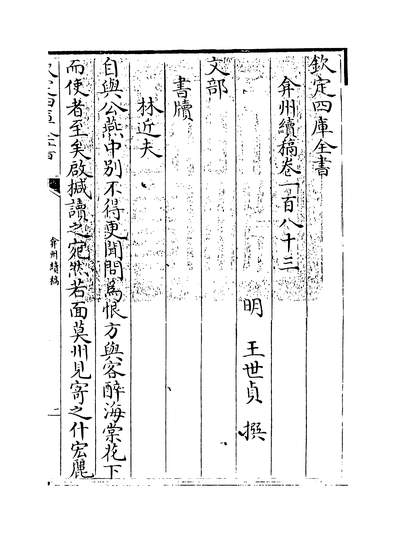 欽定四庫全書
弇州續稿卷一百八十三
明 王世貞 撰
文部
書牘
林近夫
自與公燕中別不得更聞問為恨方與客醉海棠花下
而使者至矣啟械讀之宛然若面莫州見寄之什宏麗
弇州續稿